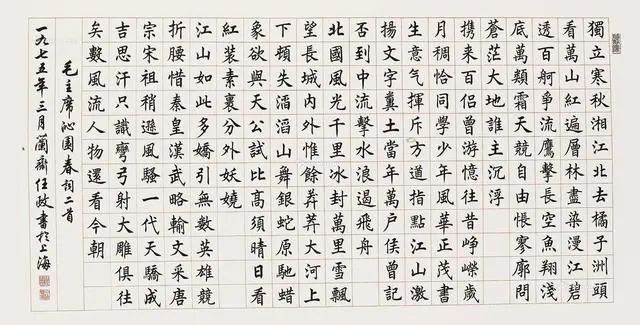 獨立寒秋湘江北去橘子洲頭
看萬山紅遍層林盡染漫江碧
透百舸爭流鷹擊長空魚翔淺
底萬類霜天競自由悵寥廓問
蒼茫大地誰主沉浮
携來百侣曾游憶往昔崢嶸歲
月稠恰同學少年風華正茂書
生意氣揮斥方遒指點江山激
揚文字糞土當年萬户侯曾記
否到中流擊水浪遏飛舟
北國風光千里冰封萬里雪飄
望長城内外惟餘莽莽大河上
下頓失滔滔山舞銀蛇原馳蜡
象欲與天公試比高須晴日看
紅裝素裹分外妖嬈
江山如此多嬌引無數英雄競
折腰惜秦皇漢武略輸文采唐
宗宋祖稍遜風騷一代天驕成
吉思汗只識彎弓射大雕俱往
矣數風流人物還看今朝
毛主席沁園春詞二首
一九七五年三月蘭齋任政書於上海